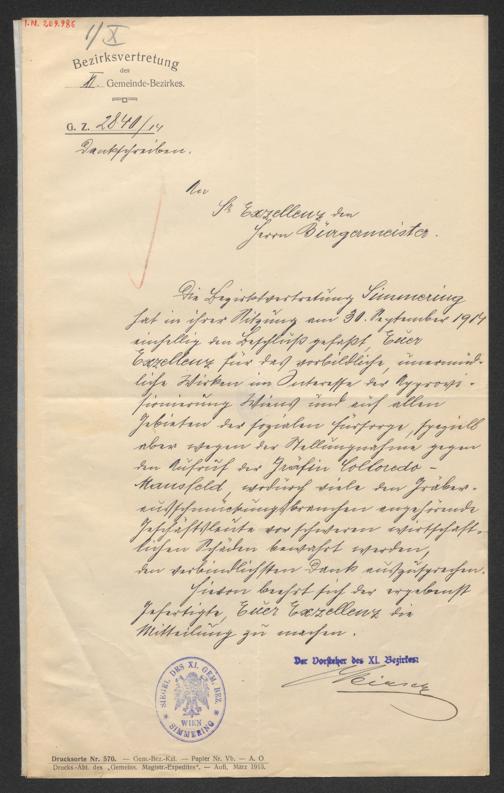 I.N. 209.986
1/X
Bezirksvertretung
des
XI. Gemeinde-Bezirkes.
G. Z. 2840/14
Dankschreiben.
An
Sr Exzellenz den
Herrn Bürgermeister.
Die Bezirksvertretung Simmering
hat in ihrer Sitzung am 30. September 1914
einhellig den Beschluß gefaßt, Euer
Exzellenz für das vorbildliche, unermüd-
liche Wirken im Interesse der Approvi-
sionierung Wiens und auf allen
Gebieten der sozialen Fürsorge, speziell
aber wegen der Stellungnahme gegen
den Aufruf der Gräfin Colloredo-
Mannsfeld, wodurch viele den Gräber-
ausschmückungsbranchen angehörende
Geschäftsleute vor schweren wirtschaft-
lichen Schäden bewahrt werden,
den verbindlichsten Dank auszusprechen.
Hievon beehrt sich der ergebenst
Gefertigte, Euer Exzellenz die
Mitteilung zu machen.
Der Vorsteher des XI. Bezirkes:
SIEGEL DES XI. GEM. BEZ.
WIEN
SIMMERING
Drucksorte Nr. 570. — Gem.-Bez.-Kzl. — Papier Nr. Vb. — A. O.
Drucks.-Abt. des „Gemeins. Magistr.-Expedites“. — Aufl. März 1913.